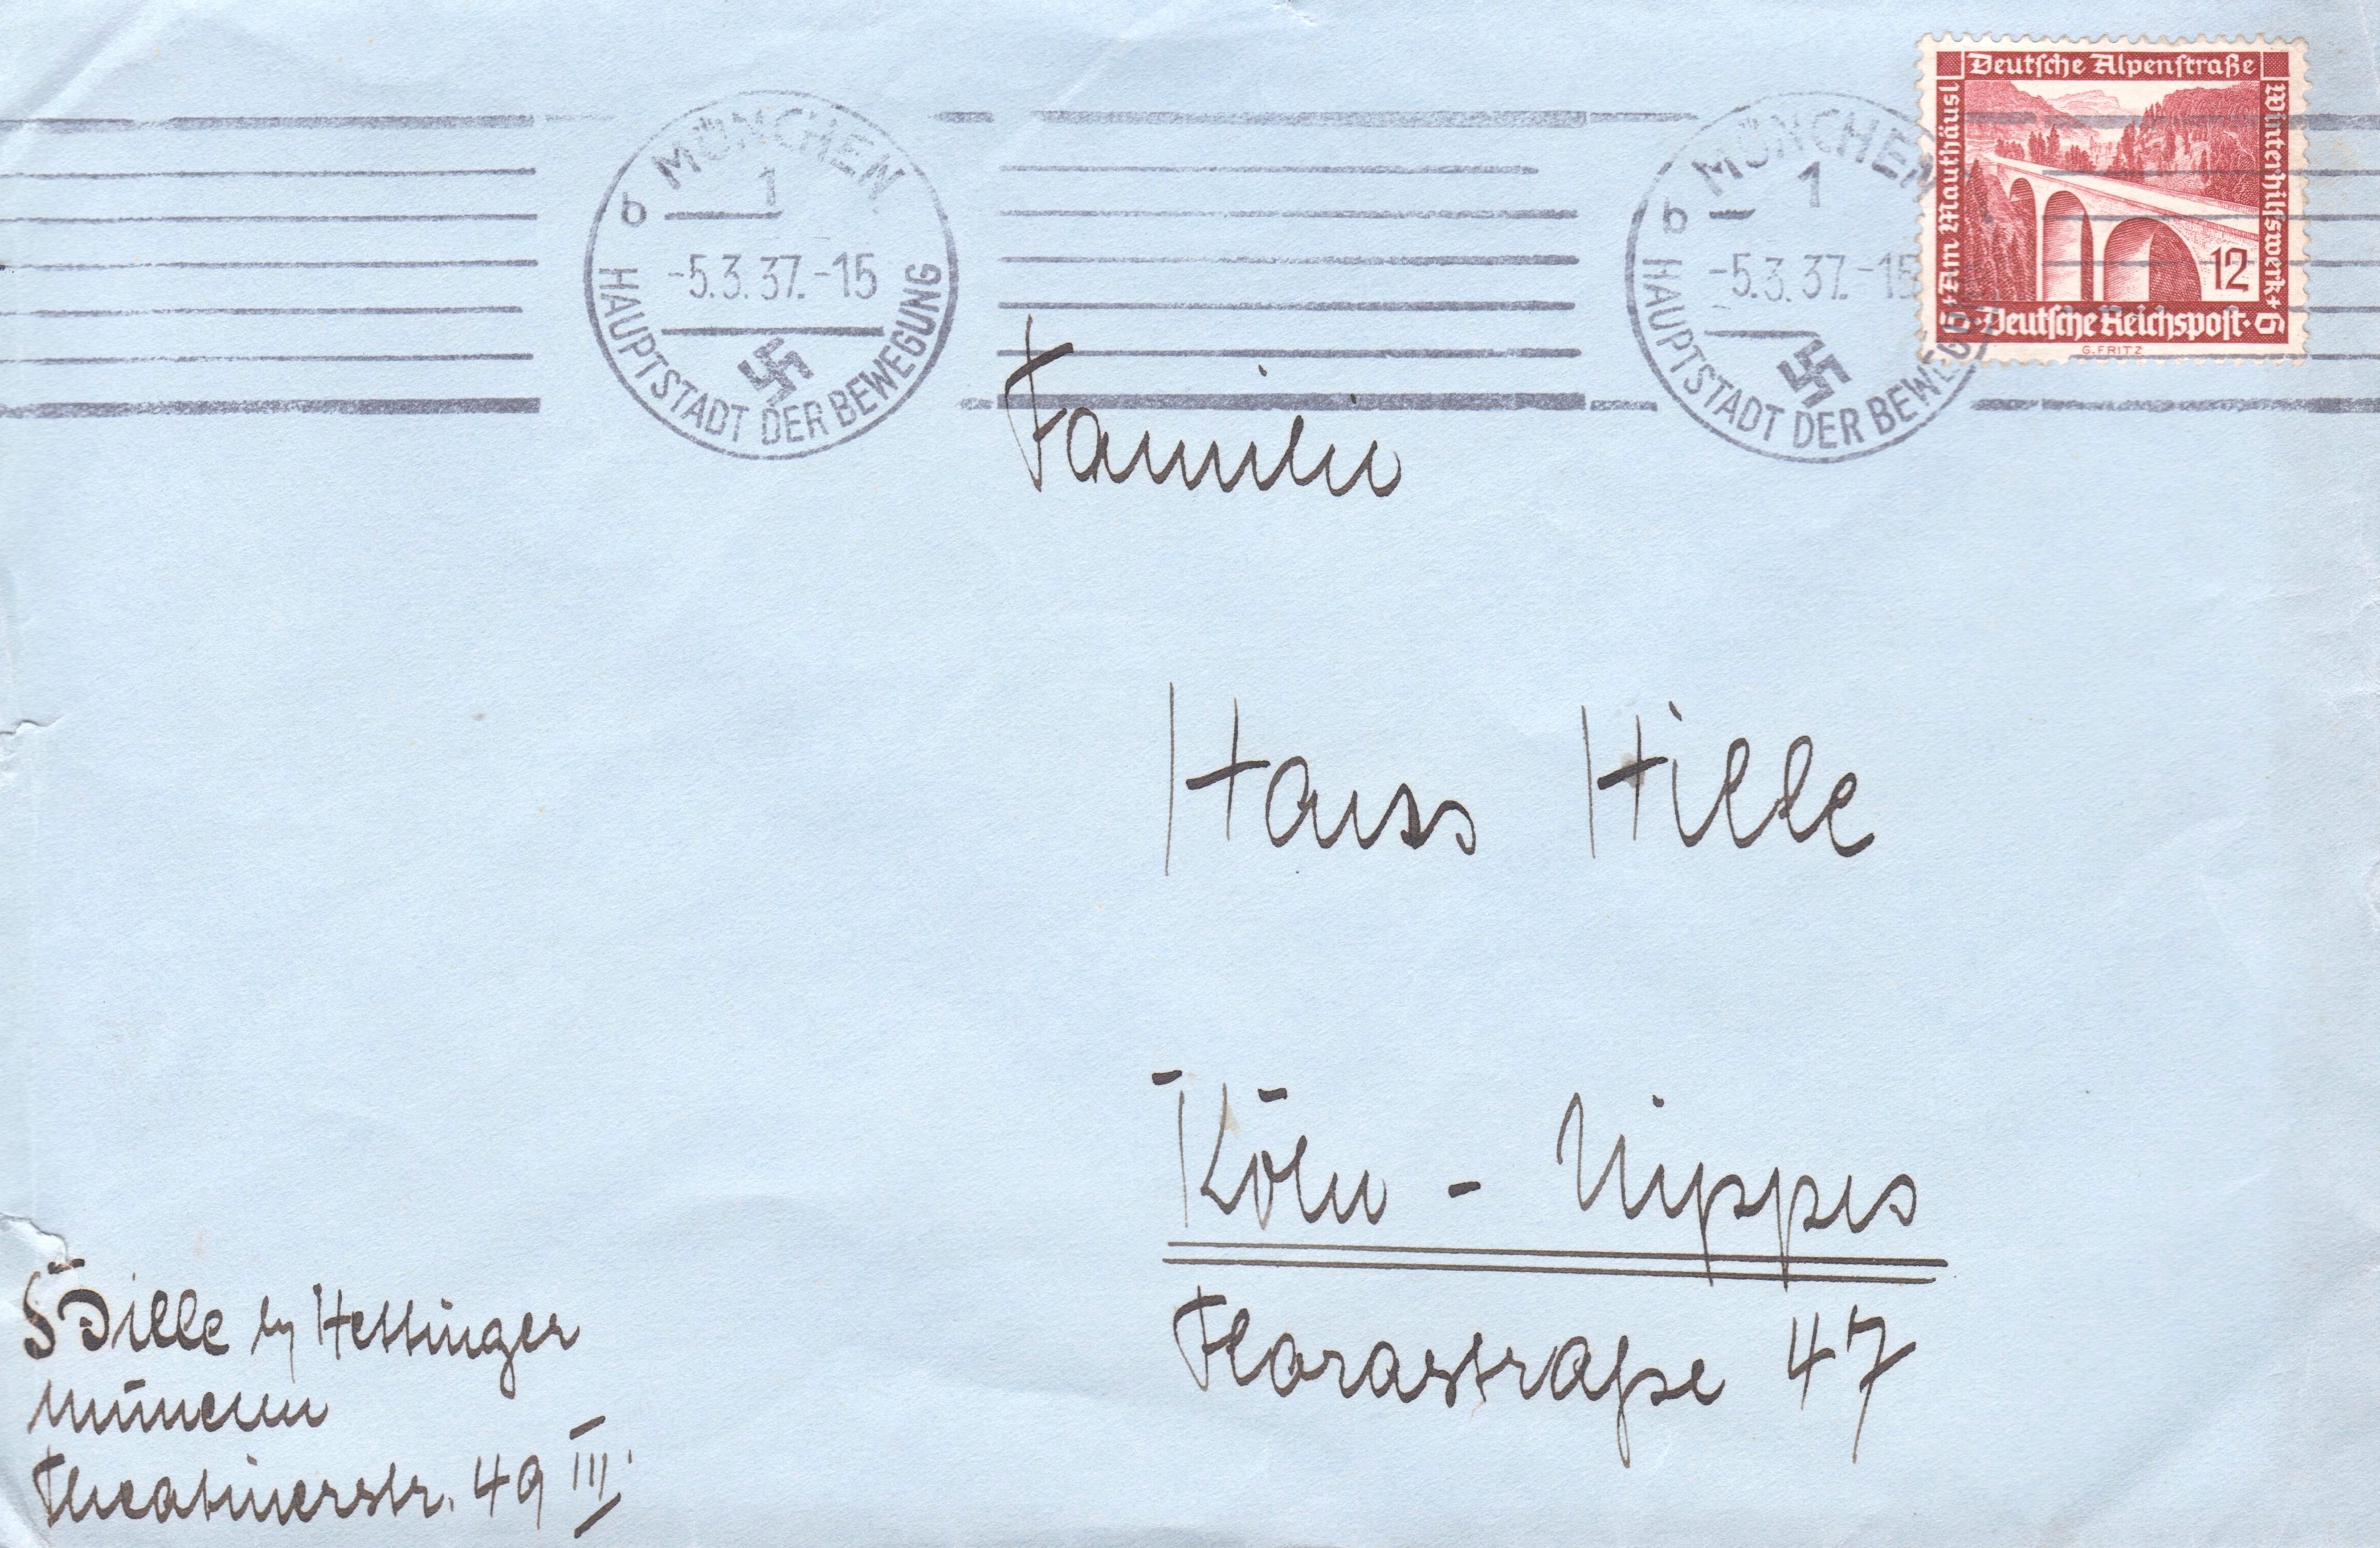 MÜNCHEN
1
b
-5.3.37.-15
HAUPTSTADT DER BEWEGUNG
MÜNCHEN
1
b
-5.3.37.-15
HAUPTSTADT DER BEWEGUNG
Deutsche Alpenstraße
Am Mauthäusl
Winterhilfswerk + 6
12
Deutsche Reichspost
G. FRITZ
Familie
Hans Hille
Köln - Nippes
Florastraße 47
Hille by Hettinger
München
Theatinerstr. 49 III